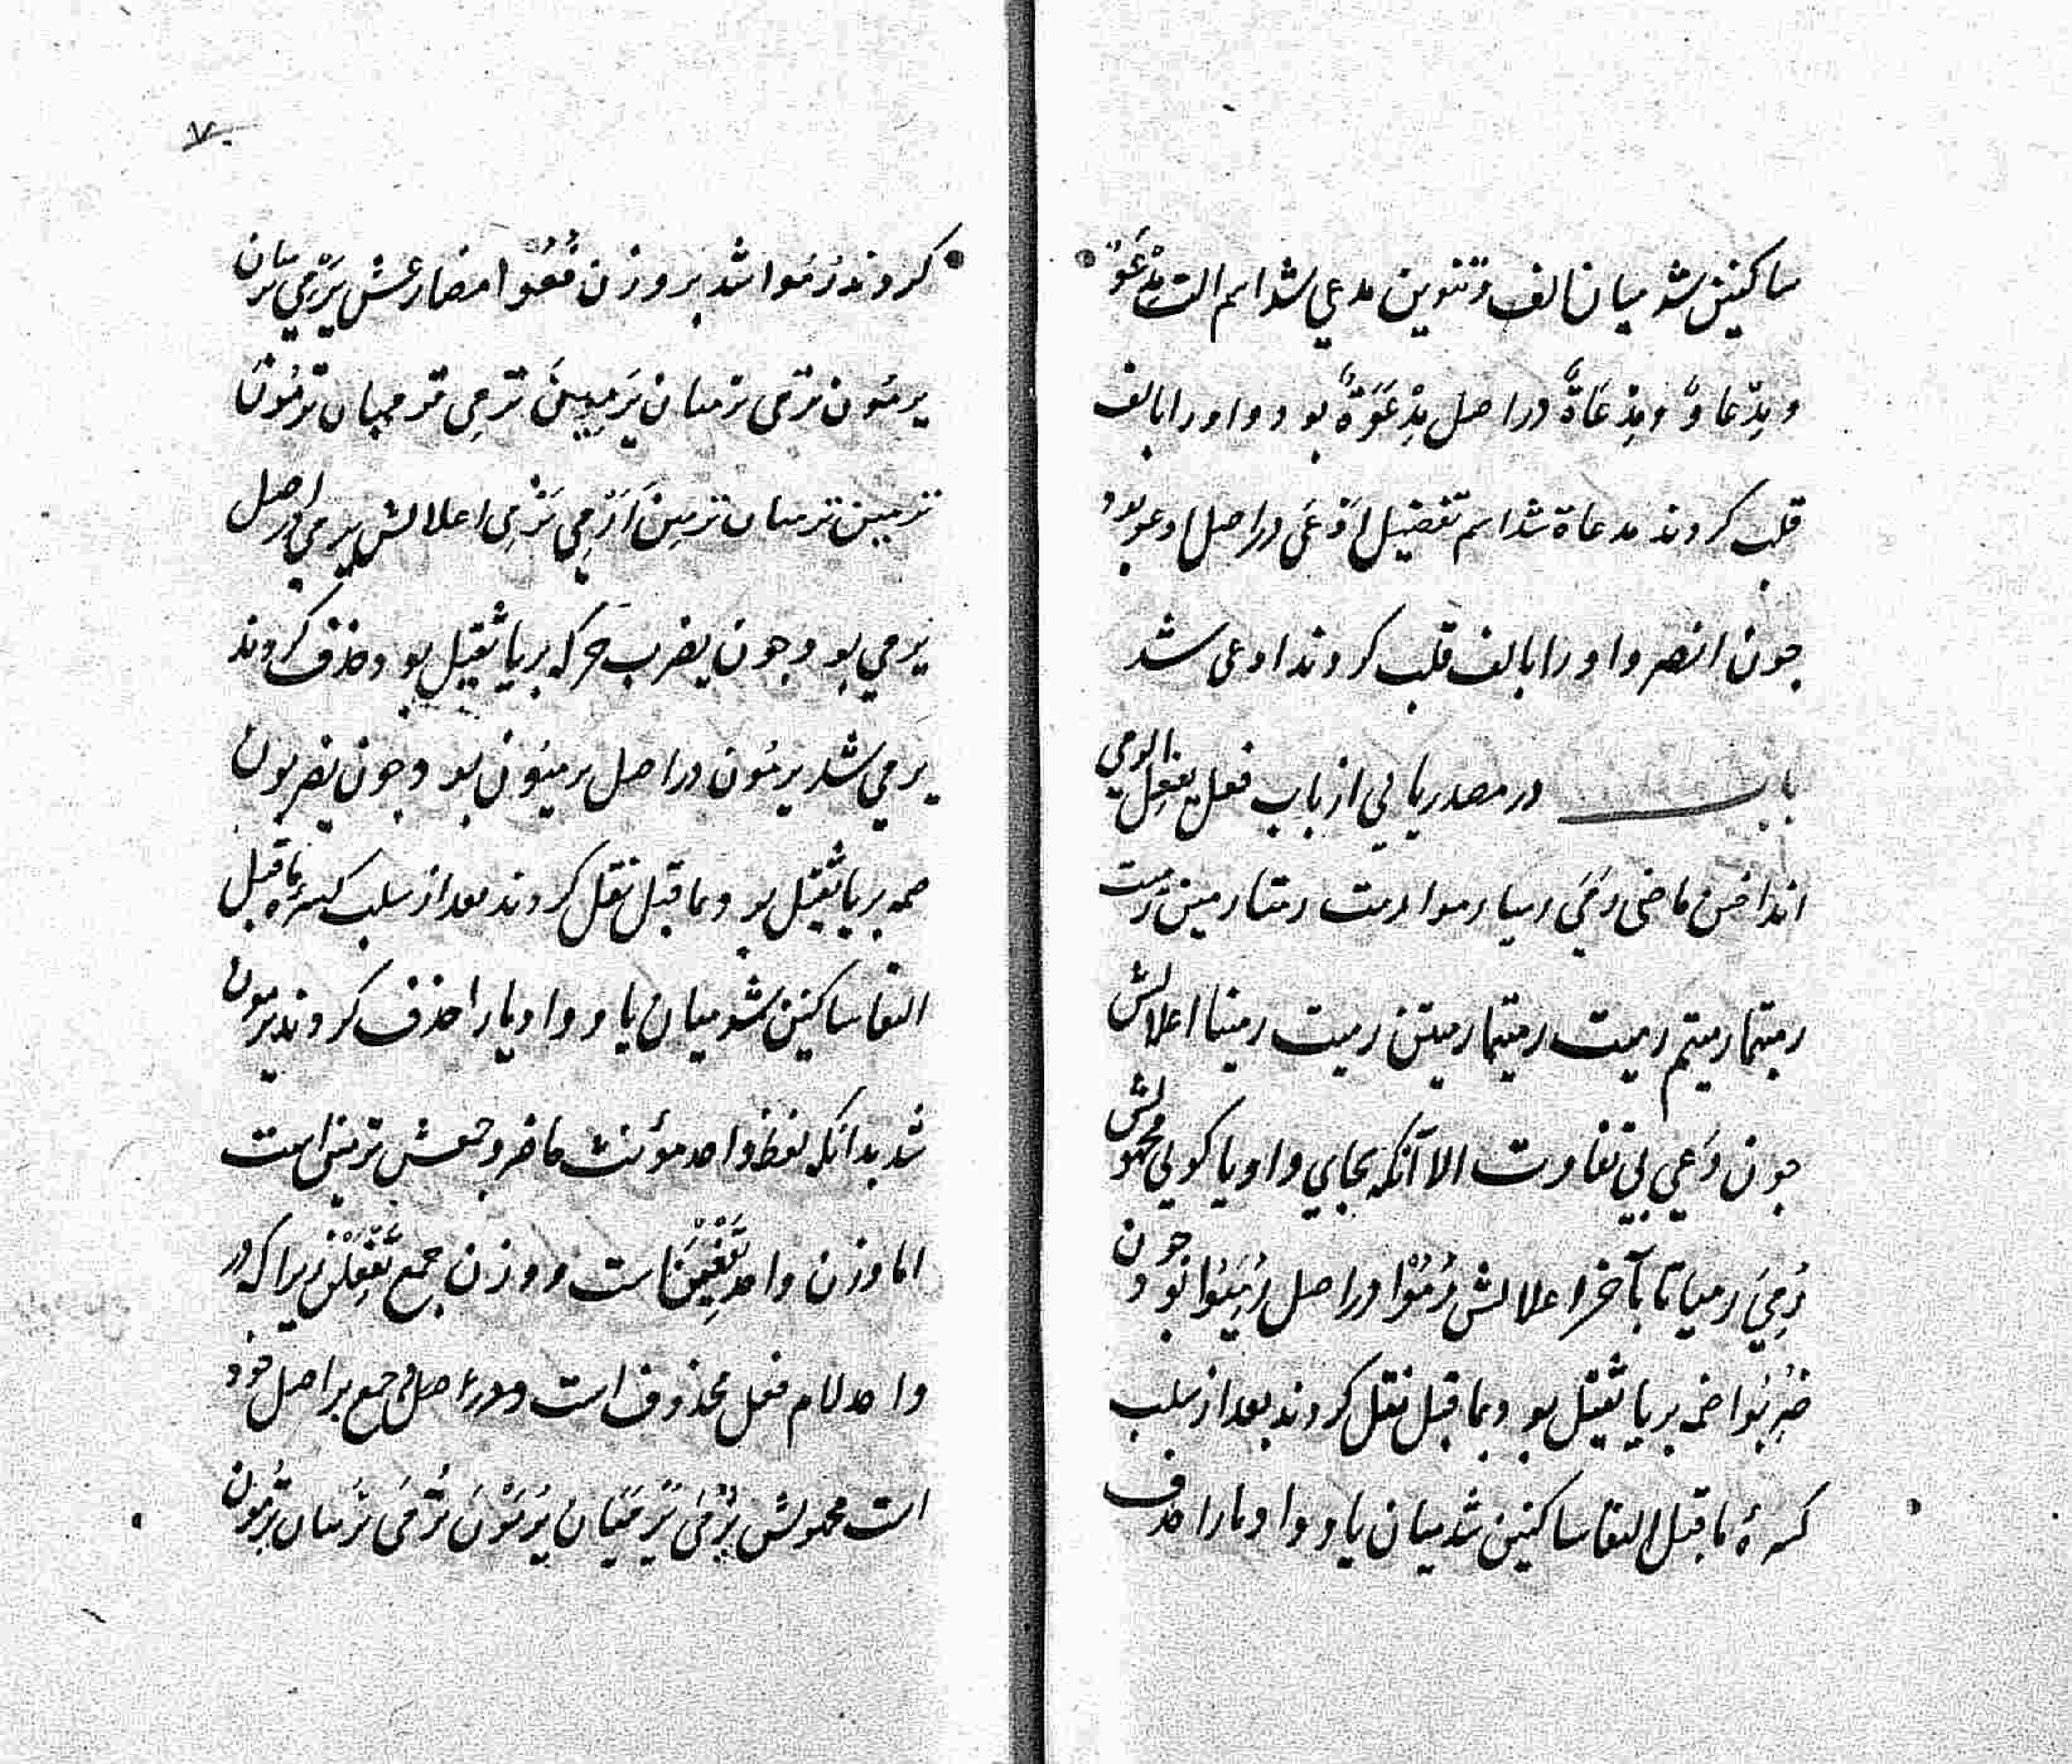 ساکنین شد میان الف و تنوین مدعی شد اسم الت مِدْعَوٌ
و مِدْعاوٌ و مِدْعَاةٌ دراصل مِدْعَوَةٌ بود واو را بالف
قلب کردند مدعاة شد اسم تفضیل اَدْعَی دراصل ادعو بود
جون انصر واو را بالف قلب کردند ادعی شد
باب در مصدر یایی از باب فعل یفعل الرمی
انداختن ماضی رَمَیَ رمیا رموا رمت رمتا رمین رمیت
رمیتما رمیتم رمیت رمیتما رمیتن رمیت رمینا اعلالش
جون دَعَی بی تفاوت الا آنکه بجای واو یا کویی مجهولش
رُمِیَ رمیا تا بآخر اعلالش رُمُوْا دراصل رُمِیُوا بود جون
ضُرِبُوا ضمه بر یا ثقیل بود بما قبل نقل کردند بعد از سلب
کسرهٔ ما قبل التقا ساکنین شد میان یا و واو یا را حذف
کردند رُمُوا شد بر وزن فُعُوْا مضارعش یَرْمِی یرمیان
یرمُون ترمی ترمیان یَرمِینَ تَرمِی ترمیان ترمُونَ
ترمین ترمیان ترمِینَ اَرْمِی نَرْمِی اعلالش یرمی دراصل
یَرمی بود جون یضرب حرکه بر یا ثقیل بود حذف کردند
یرمی شد یرمُون دراصل یرمیُون بود جون یضربون
ضمه بر یا ثقیل بود بما قبل نقل کردند بعد از سلب کسرهٔ ما قبل
التقا ساکنین شد میان یا و واو یا را حذف کردند یرمون
شد بدانکه لفظ واحد مؤنث حاضر و جمعش ترمین است
اما وزن واحد تَفْعِیْنَ است و وزن جمع تَفْعِلْنَ زیرا که در
واحد لام فعل محذوف است و در جمع بر اصل خود
است مجهولش یُرْمَی یُرْمَیَانِ یُرْمَوْنَ تُرْمَی تُرمَیان تُرمَون